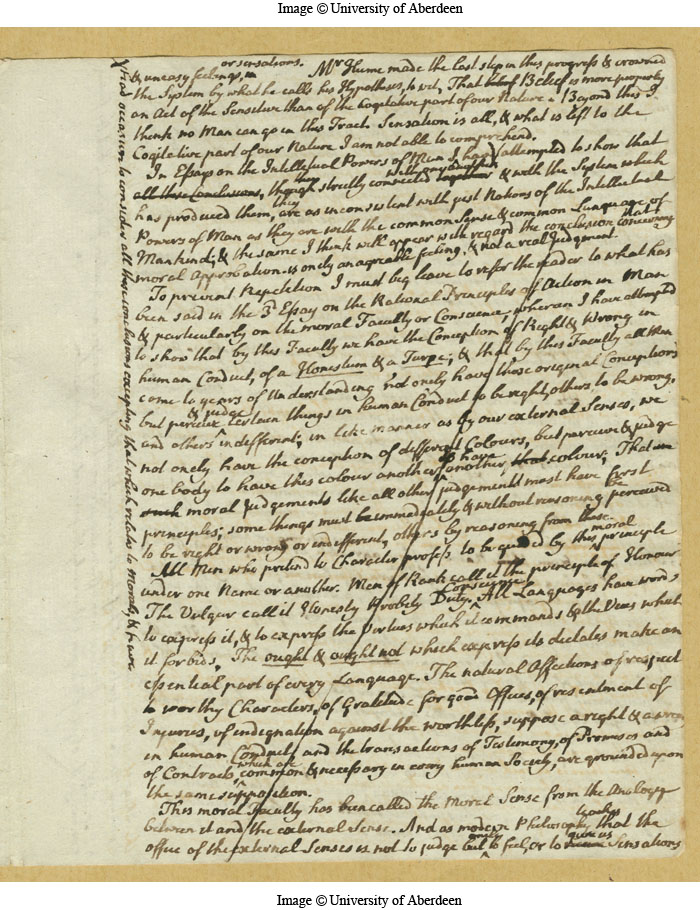 Image © University of Aberdeen
or sensations.
& uneasy feelings, Mr Hume made the last step in this progress & crowned
the System by what he calls his Hypothesis, to wit, That Belief is more properly
an Act of the Sensitive than of the Cogitative part of our Nature. Beyond this I
think no Man can go in this Tract. Sensation is all, & what is left to the
Cogitative part of our Nature I am not able to comprehend.
In Essays on the Intellectual Powers of Man I have attempted to show that
all these Conclusions, though strictly connected together & with the System which
has produced them, they are as inconsistent with just Notions of the Intellectual
Powers of Man as they are with the common Sense & common Language of
Mankind; & the same I think will appear with regard the conclusion concerning
moral Approbation that is onely an agreable feeling, & not a real Judgment.
To prevent Repetition I must beg leave to refer the reader to what has
been said in the 3d Essay on the Rational Principles of Action in Man
& particularly on the moral Faculty or Conscience, wherein I have attempted
to show that by this Faculty we have the Conception of Right & Wrong in
human Conduct, of a Honestum & a Turpe; & that by this Faculty all Men
come to years of Understanding not onely have those original Conceptions
but perceive & judge certain things in human Conduct to be right, others to be wrong,
and others indifferent; in like manner as by our external Senses, we
not onely have the conception of different Colours, but perceive & judge
one body to have this colour another to have another colour. That
such moral Judgements like all other judgements must have first
principles; some things must be immediately & without reasoning be perceived
to be right or wrong or indifferent, others by reasoning from these.
All Men who pretend to Character profess to be guided by this moral principle
under one Name or another. Men of Rank call it the principle of Honour
The Vulgar call it Honesty Probity Conscience Duty. All Languages have words
to express it, & to express the Virtues which it commands & the Vices which
it forbids. The ought & ought not which express its dictates make an
essential part of every Language. The natural Affections of respect
to worthy Characters, of Gratitude for good Offices, of resentment of
Injuries, of indignation against the worthless, suppose a right & a wrong
in human Conduct, and the transactions of Testimony, of Promises and
of Contracts, which are common & necessary in every human Society, are grounded upon
the same supposition.
This moral Faculty has been called the Moral Sense from the Analogy
between it and the external Sense. And as modern Philosophy teaches that the
office of the external Senses is not to judge but onely to feel, or to give us Sensations
I has occasion to consider all those conclusions excepting that which relates to Morals, & have
Image © University of Aberdeen